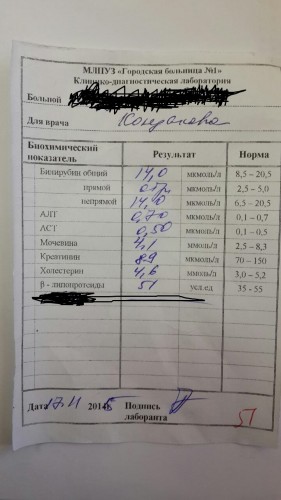 МЛПУЗ «Городская больница №1»
Клинико-диагностическая лаборатория
Больной
Для врача
Биохимический показатель Результат Норма
Билирубин общий 14,0 мкмоль/л 8,5 – 20,5
прямой отр. мкмоль/л 2,5 – 5,0
непрямой 14,0 мкмоль/л 6,5 – 20,5
АЛТ 0,70 ммоль/л 0,1 – 0,7
АСТ 0,50 ммоль/л 0,1 – 0,5
Мочевина 4,1 ммоль/л 2,5 – 8,3
Креатинин 89 мкмоль/л 70 – 150
Холестерин 4,6 ммоль/л 3,0 – 5,2
β - липопротеиды 51 усл.ед 35 - 55
Дата 17.11 201 Подпись
лаборанта
51